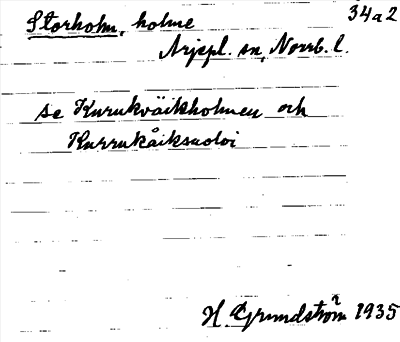 Storholm, holme 34a2
Arjepl. sn, Norrb. l.
se Kurukväikholmen och
Kurrukåiksuoloi
H. Grundström 1935